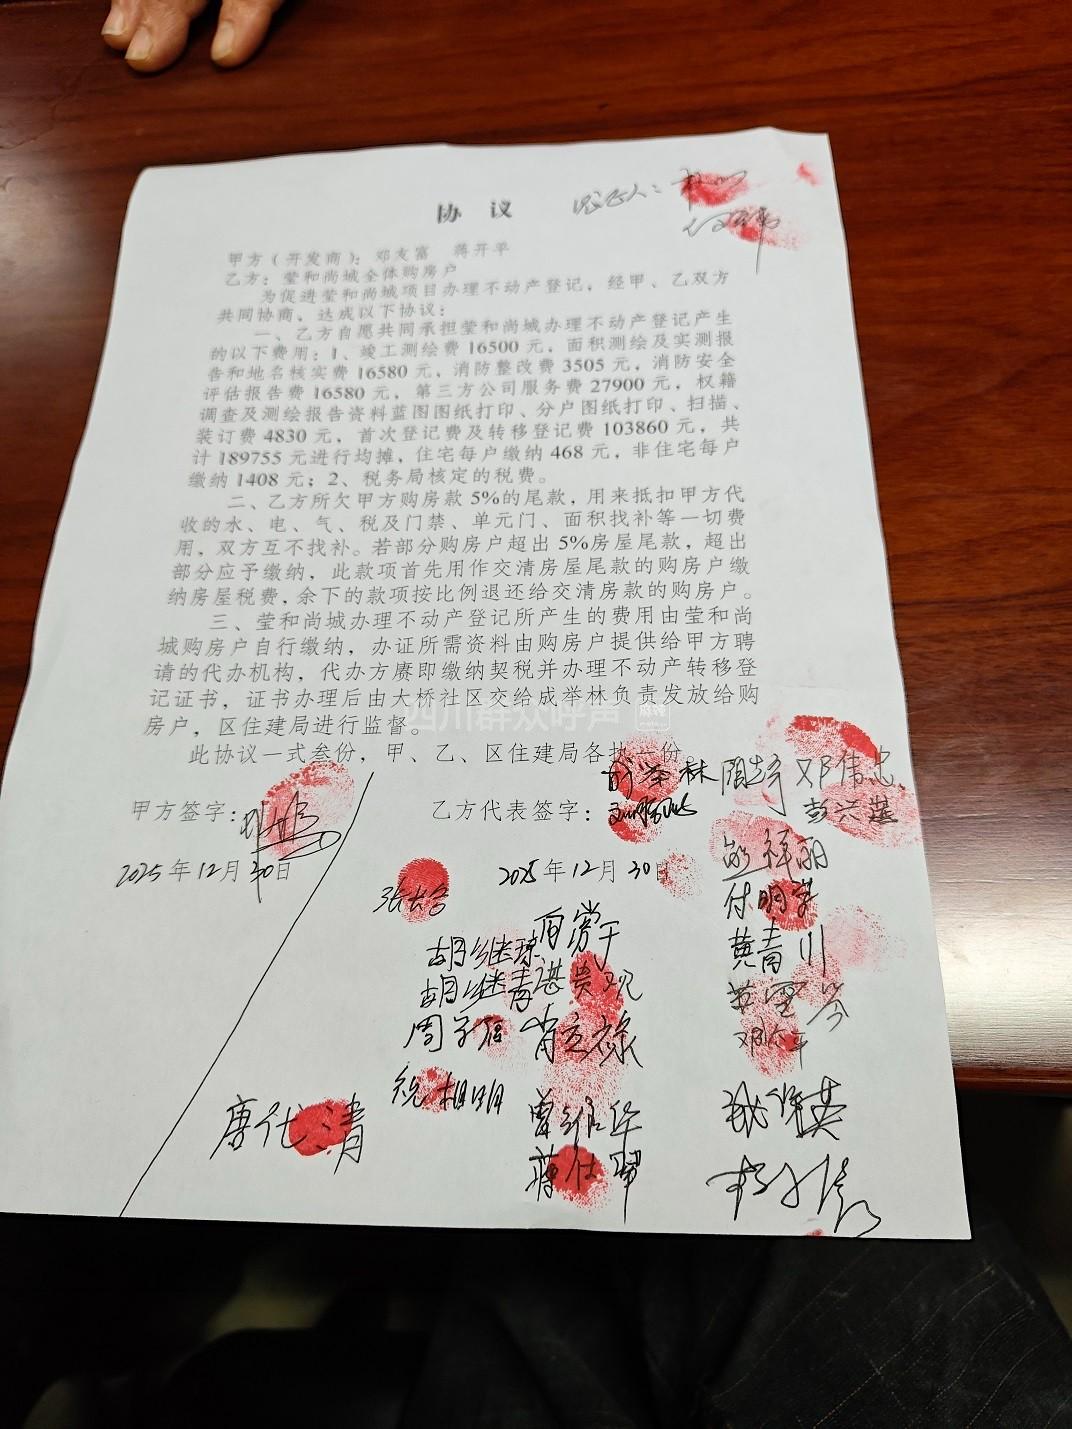 协 议
见证人：
甲方（开发商）：邓友富 蒋开平
乙方：莹和尚城全体购房户
为促进莹和尚城项目办理不动产登记，经甲、乙双方
共同协商，达成以下协议：
一、乙方自愿共同承担莹和尚城办理不动产登记产生
的以下费用：1、竣工测绘费 16500 元，面积测绘及实测报
告和地名核实费 16580 元，消防整改费 3505 元，消防安全
评估报告费 16580 元，第三方公司服务费 27900 元，权籍
调查及测绘报告资料蓝图图纸打印、分户图纸打印、扫描、
装订费 4830 元，首次登记费及转移登记费 103860 元，共
计 189755 元进行均摊，住宅每户缴纳 468 元，非住宅每户
缴纳 1408 元；2、税务局核定的税费。
二、乙方所欠甲方购房款 5%的尾款，用来抵扣甲方代
收的水、电、气、税及门禁、单元门、面积找补等一切费
用，双方互不找补。若部分购房户超出 5%房屋尾款，超出
部分应予缴纳，此款项首先用作交清房屋尾款的购房户缴
纳房屋税费，余下的款项按比例退还给交清房款的购房户。
三、莹和尚城办理不动产登记所产生的费用由莹和尚
城购房户自行缴纳，办证所需资料由购房户提供给甲方聘
请的代办机构，代办方赓即缴纳契税并办理不动产转移登
记证书，证书办理后由大桥社区交给成举林负责发放给购
房户，区住建局进行监督。
四川群众呼声
此协议一式叁份，甲、乙、区住建局各执一份
甲方签字：
乙方代表签字：
邓伟忠
2025年12月30日
2025年12月30日
付明学
胡继琼
黄青川
胡继青
周子信
肖立禄
祝相明
唐代清
曾维华
蒋仕